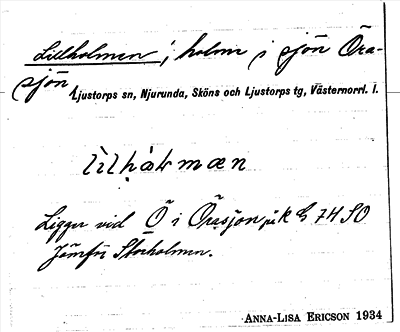 Lillholmen, holme i sjön Öra-
sjön,
Ljustorps sn, Njurunda, Sköns och Ljustorps tg, Västernorrl. l.
Ligger vid Ö i Örasjön på k 74 SO
Jämför Storholmen.
ANNA-LISA ERICSON 1934